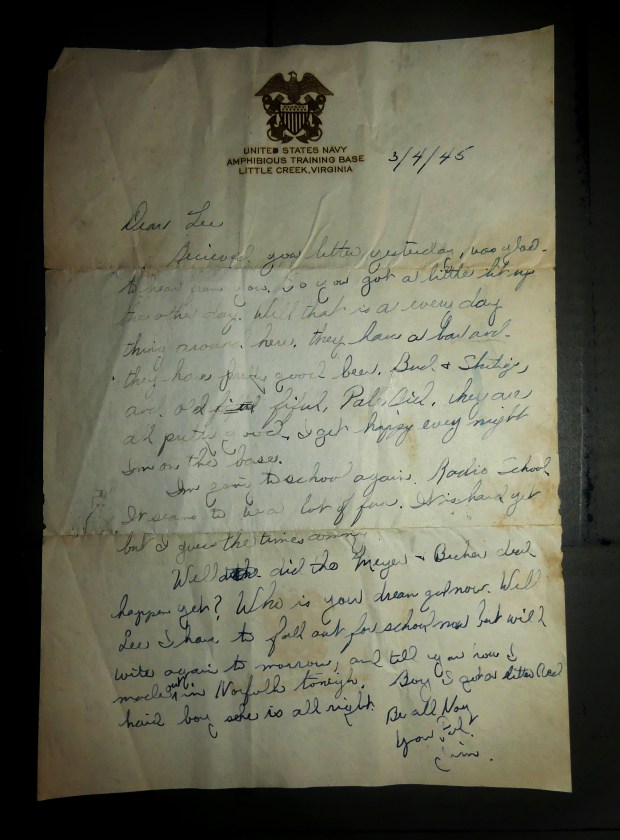 UNITED STATES NAVY
AMPHIBIOUS TRAINING BASE
LITTLE CREEK, VIRGINIA
3/4/45
Dear Lee
Recieved your letter yesterday, was glad
to hear from you. So you got a little
the other day. Well that is a every day
thing around here. they have a bar and
they have good beer. Bud. &
and old Pabst They are
all good, I get happy every night
Im on the base.
Im going to school again. Radio School
It seams to be a lot of fun. It is hard yet
but I guess the times
Well did the Meyer & Becher deal
happen yet? Who is your dream now. Well
Lee I have to fall out for school now but will
write again to morrow, and tell you how I
made out in Norfolk tonigh. Boy I got a little Red
haid boy she is all right.
Be all Nav
Your Pal.
Jim.